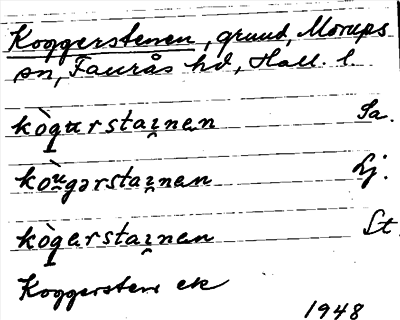 Koggerstenen, grund, Morups
sn, Faurås hd, Hall. l.
kògarstaı̯nen Sa.
koù̯gərstaı̯nen Lj.
kògerstaı̯nen St.
Koggersten ek
1948